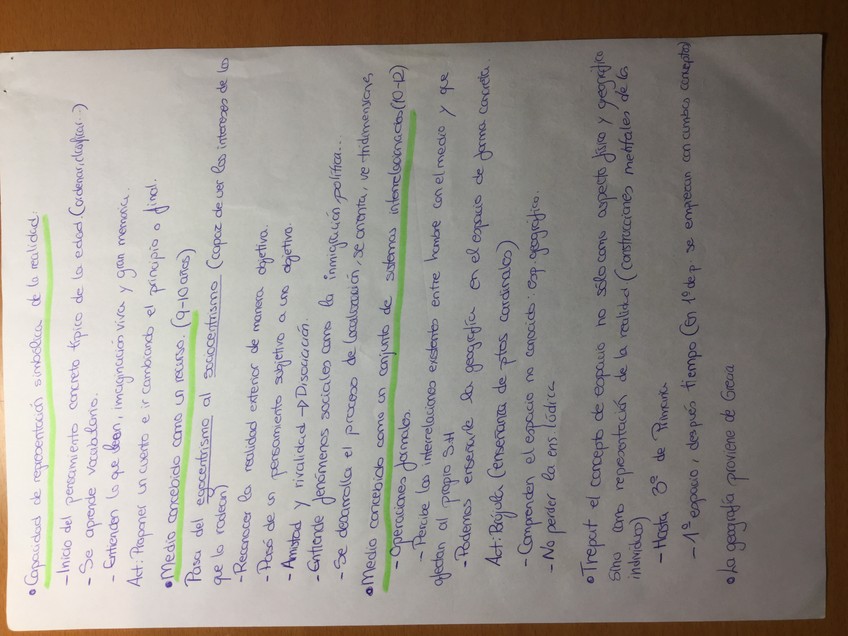 • Capacidad de representación simbólica de la realidad:
- Inicio del pensamiento concreto típico de la edad (ordenar, clasificar...)
- Se aprende vocabulario.
- Entienden lo que leen, imaginación viva y gran memoria.
Act: Proponer un cuento e ir cambiando el principio o final.
• Medio concebido como un recurso, (9-10 años)
Pasa del egocentrismo al sociocentrismo (capaz de ver los intereses de los
que lo rodean)
- Reconocer la realidad exterior de manera objetiva.
- Pasó de un pensamiento subjetivo a uno objetivo.
- Amistad y rivalidad → Disociación.
- Entiende fenómenos sociales como la inmigración, política...
- Se desarrolla el proceso de localización, se orienta, ve tridimensions,
• Medio concebido como un conjunto de sistemas interrelacionados (10-12)
- Operaciones formales.
- Percibe las interrelaciones existentes entre hombre con el medio y que
afectan al propio S.H
- Podemos enseñarle la geografía en el espacio de forma concreta.
Act: Brújula (enseñanza de ptos cardinales)
- Comprenden el espacio no conocido: esp. geográfico.
- No perder la ens. lúdica
• Trepat el concepto de espacio no sólo como aspecto físico y geográfico
sino como representación de la realidad (construcciones mentales de los
individuos)
- Hasta 3º de Primaria
- 1º espacio, después tiempo (En 1º de p. se empiezan con ambos conceptos)
• La geografía proviene de Grecia